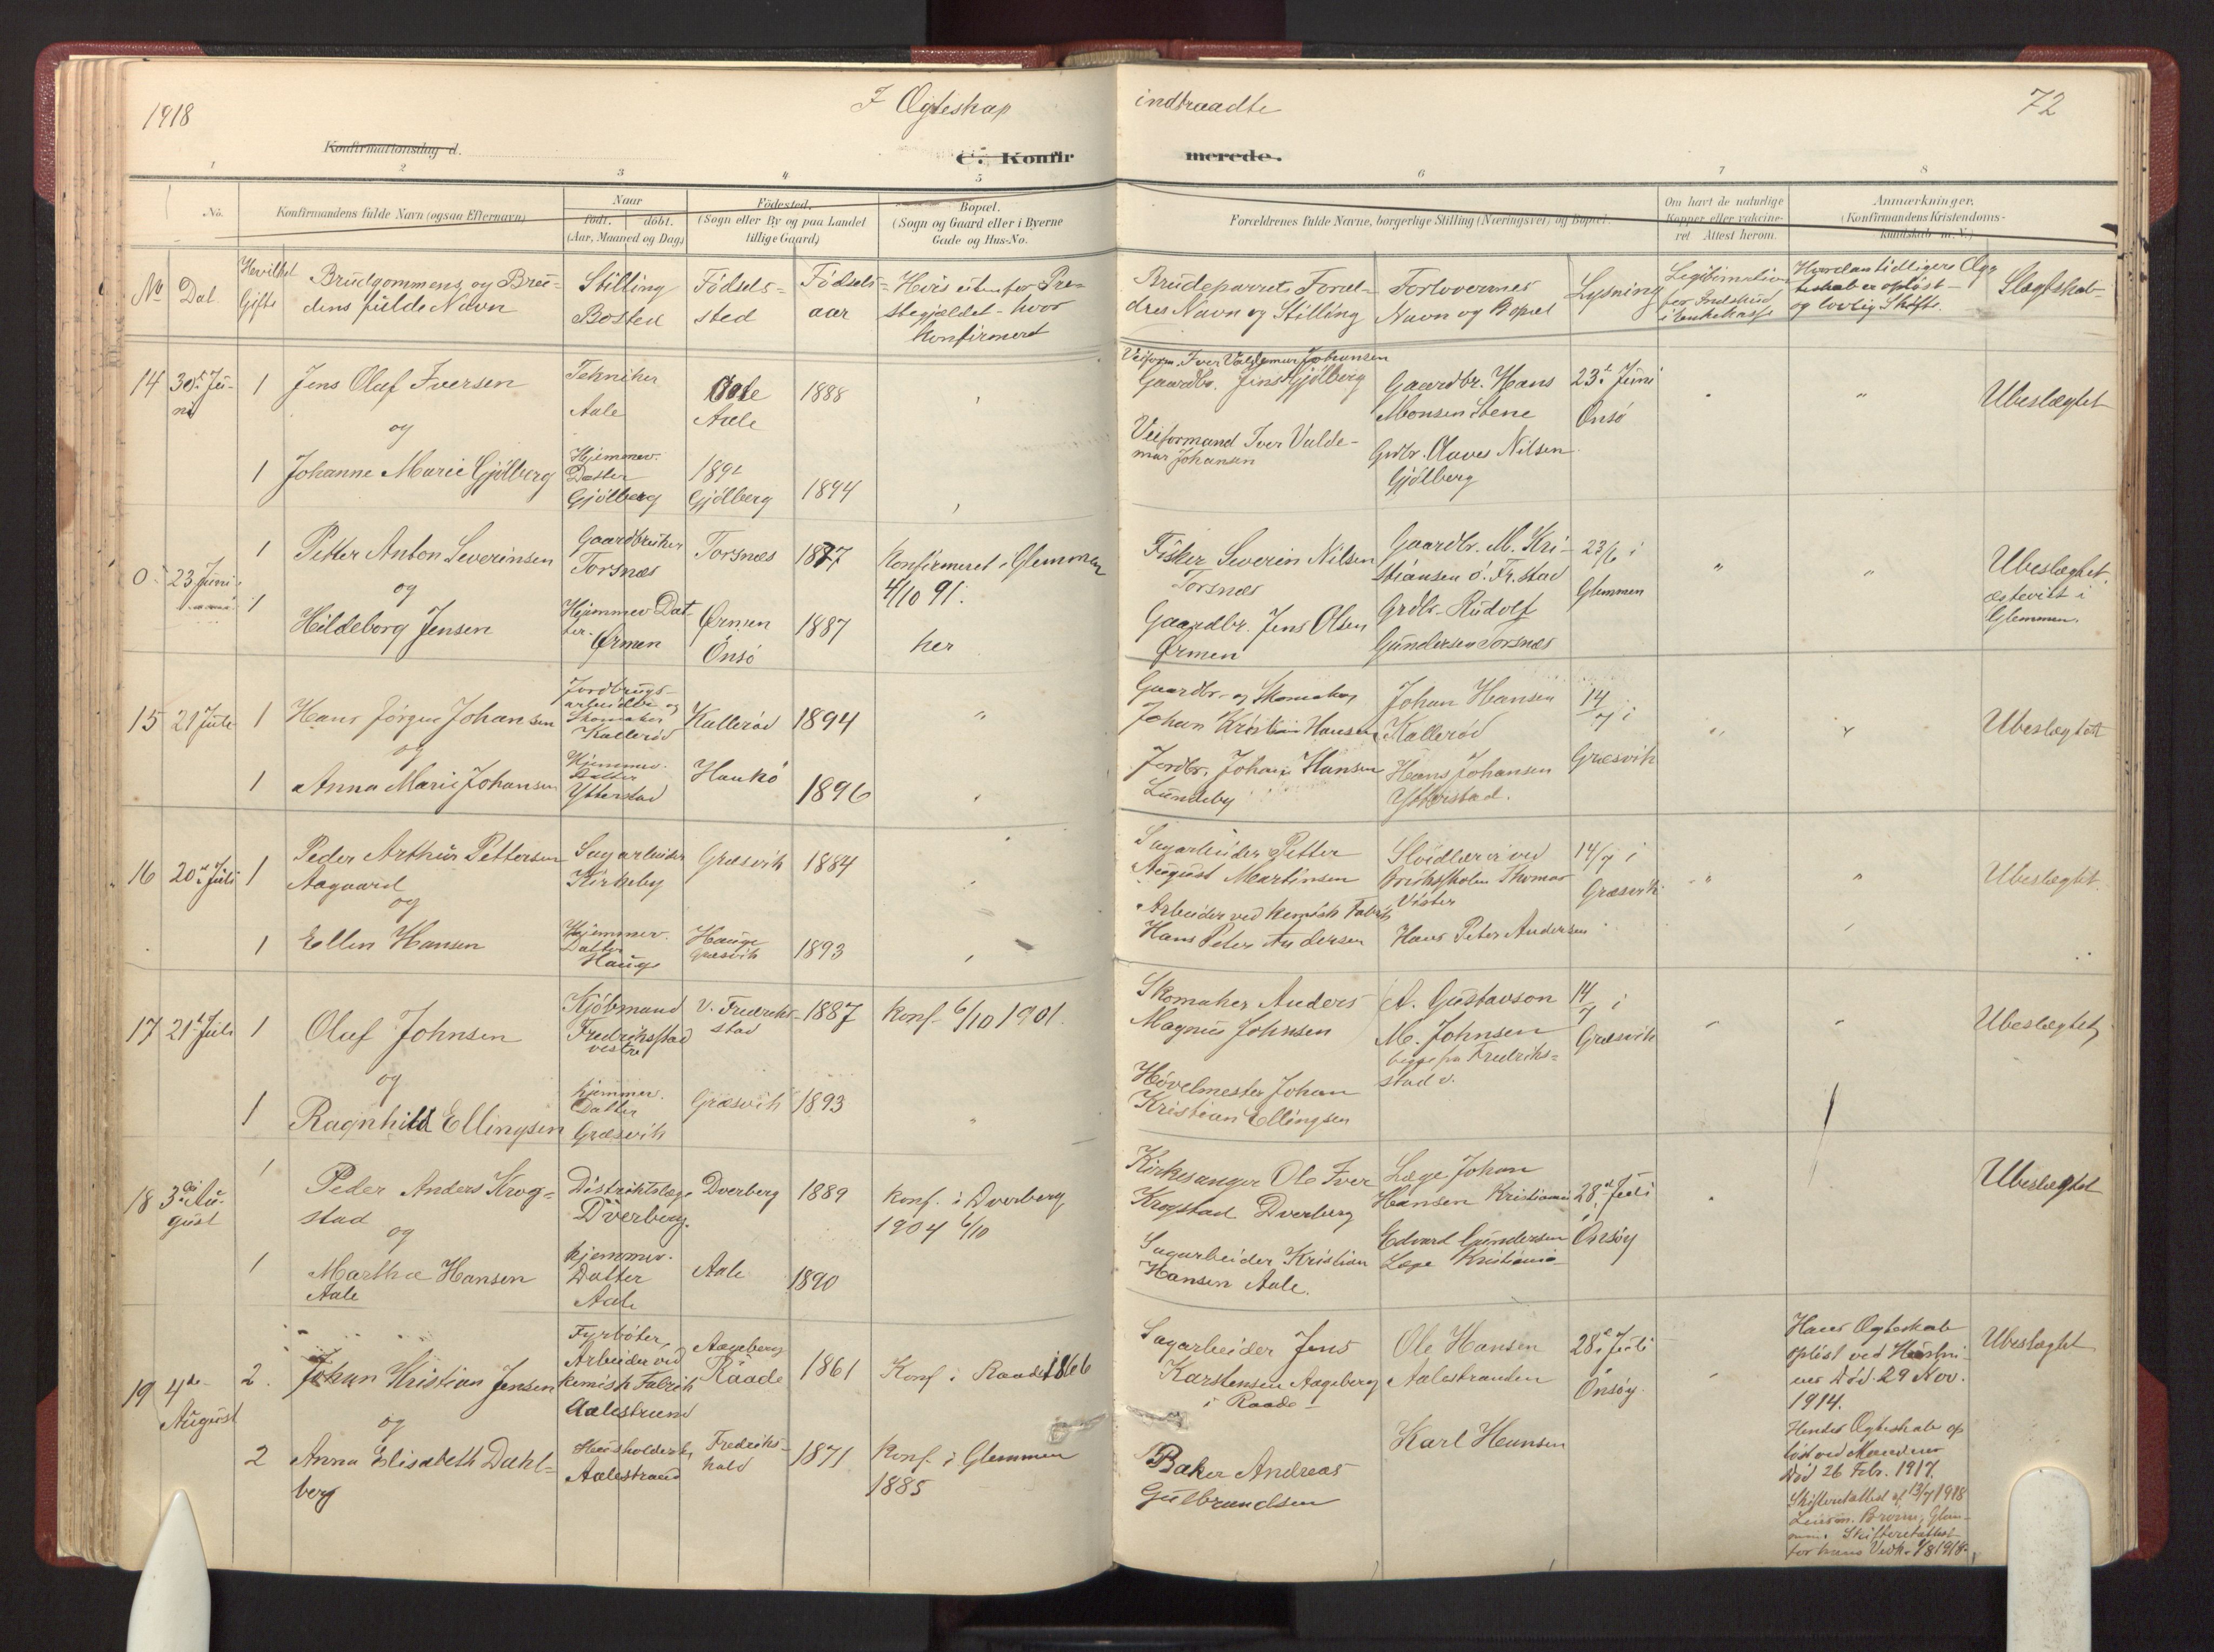 1918
I Ægteskap
indtraadte
72
Konfirmationsdag d.
C. Konfir
merede.
1
2
3
4
5
6
7
8
No.
Konfirmandens fulde Navn (ogsaa Efternavn)
Naar
født. døbt.
(Aar, Maaned og Dag)
Fødested.
(Sogn eller By og paa Landet
tillige Gaard)
Bopæl.
(Sogn og Gaard eller i Byerne
Gade og Hus-No.
Forældrenes fulde Navne, borgerlige Stilling (Næringsvei) og Bopæl.
Om havt de naturlige
Kopper eller vakcine-
ret. Attest herom.
Anmærkninger.
(Konfirmandens Kristendoms-
kundskab m. V.)
No Dat
Hvervilket
Gifte
Brudgommens og Bru-
dens fulde Navn
Stilling
Bosted
Fødsels-
sted
Fødsels-
aar
Hvis utenfor Pre-
stegjældet - hvor
konfirmert
Brudeparrets Foræl-
dres Navn og Stilling
Forlovernes
Navn og Bopæl
Lysning
Legitimation
for Indskud
i Enkekasse
Hvordan tidligere Æg-
teskab er opløst -
og lovlig Skifte.
Slægtskab
14 30te Ju-
ni
1 Jens Olaf Iversen
og
Tekniker
Aale
Aale
1888
Veiform. Iver Valdemar Johansen
Gaardbr. Jens Gjølberg
Gaardbr. Hans
Monsen Stene
23de Juni
Onsø
Ubeslægtet
1 Johanne Marie Gjølberg
Hjemmev.
Datter
Gjølberg
1891
Gjølberg
1894
Veiformand Iver Valde-
mar Johansen
Grdbr. Olaves Nilsen
Gjølberg
0 23 Juni
1 Petter Anton Severinsen
og
Gaardbruker
Torsnæs
Torsnæs
1877
Konfirmeret i Glemmen
4/10 91.
Fisker Severin Nilsen
Torsnæs
Gaardbr. M. Kri-
stiansen ö. Fr.stad
23/6 i
Glemmen
Ubeslægtet
ægteviet i
Glemmen.
1 Hildeborg Jensen
Hjemmev Dat-
ter.
Ørmen
Ørmen
Onsø
1887
her
Gaardbr. Jens Olsen
Ørmen
Grdbr. Rudolf
Gundersen Torsnæs
15 21 Juli
1 Hans Jørgen Johansen
og
Jordbrugs-
arbeider og
Skomaker
Kallerød
Kallerød
1894
Gaardbr. og Skomaker
Johan Kristian Hansen
Johan Hansen
Kallerød
14
7 i
Græsvik
Ubeslægtet
1 Anna Marie Johansen
Hjemmev.
Datter
Ytterstad
Hankø
1896
Jordbr. Johan Hansen
Lundeby
Hans Johansen
Ytterstad.
16 20de Juli
1 Peder Arthur Pettersen
Aagaard
og
Sagarbeider
Kirkeby
Græsvik
1884
Sagarbeider Petter
August Martinsen
Sløidlærer ved
Thomas
Vister
14/7 i
Græsvik
Ubeslægtet.
1 Ellen Hansen
Hjemmev.
Datter
Hauge
Hauge
Græsvik
1893
Arbeider ved kemisk Fabrik
Hans Peter Andersen
Hans Peter Andersen
17 21de Juli
1 Oluf Johnsen
og
Kjøbmand
Fredriksstad
vestre
V. Fredrik-
stad
1887
Konf. 6/10 1901.
Skomaker Anders
Magnus Johnsen
A. Gustavson
M. Johnsen
begge fra Fredriks-
stad v.
14
7 i
Græsvik
Ubeslægtet
1 Ragnhild Ellingsen
hjemmev.
Datter
Græsvik
Græsvik
1893
Høvelmester Johan
Kristian Ellingsen
18 3die Au-
gust
1 Peder Anders Krog-
stad
og
Distriktslæge
Dverberg.
Dverberg
1889
Konf. i Dverberg
1904 6/10
Kirkesanger Ole Iver
Krogstad Dverberg
Læge Johan
Hansen Kristiania
28de Juli
i
Onsøy
Ubeslægtet
1 Martha Hansen
Aale
hjemmev.
Datter
Aale
Aale
1890
Sagarbeider Kristian
Hansen Aale.
Edvard Gundersen
Læge Kristiania
19 4de
August
2. Johan Kristian Jensen
og
Fyrbøter
Arbeider ved
kemisk Fabrik
Aalestrand
Aageberg
Raade
1861
Konf. i Raade 1866
Sagarbeider Jens
Karstensen Aageberg
i Raade
Ole Hansen
Aalestranden
28de Juli
i
Onsøy
Hans Ægteskab
opløst ved Hustru-
ens Død 29 Nov.
1914.
Ubeslægtet
2 Anna Elisabeth Dahl-
berg
Husholderske
Aalestrand
Fredriks-
hald
1871
Konf. i Glemmen
1885
Baker Andreas
Gulbrandsen
Karl Hansen
Hendes Ægteskab op
løst ved Mandens
Død 26 Febr. 1917.
Skifteretattest af 13/7 1918
Lensm. Glem-
men. Skifteretattest
for hans Vedk. 1/8 1918.